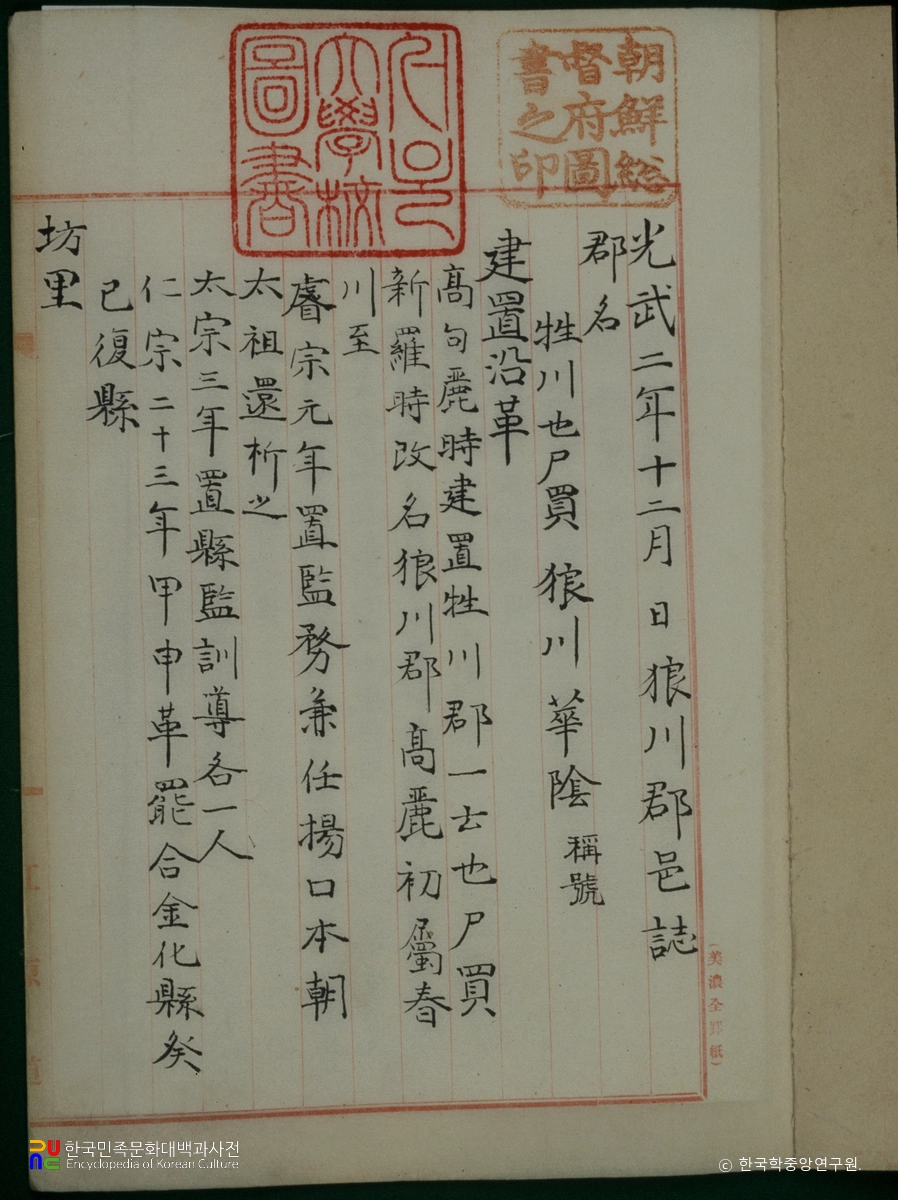 朝鮮総
督府圖
書之印
서울
大學校
圖書
光武二年十二月 日狼川郡邑誌
郡名
牲川也尸買 狼川 華陰 稱號
建置沿革
髙句麗時建置牲川郡一云也尸買
新羅時改名狼川郡髙麗初屬春
川至
睿宗元年置監務兼任揚口本朝
太祖還析之
太宗三年置縣監訓導各一人
仁宗二十三年甲申革罷合金化縣癸
已復縣
坊里
(美濃全罫紙)
한국민족문화대백과사전
Encyclopedia of Korean Culture
© 한국학중앙연구원.